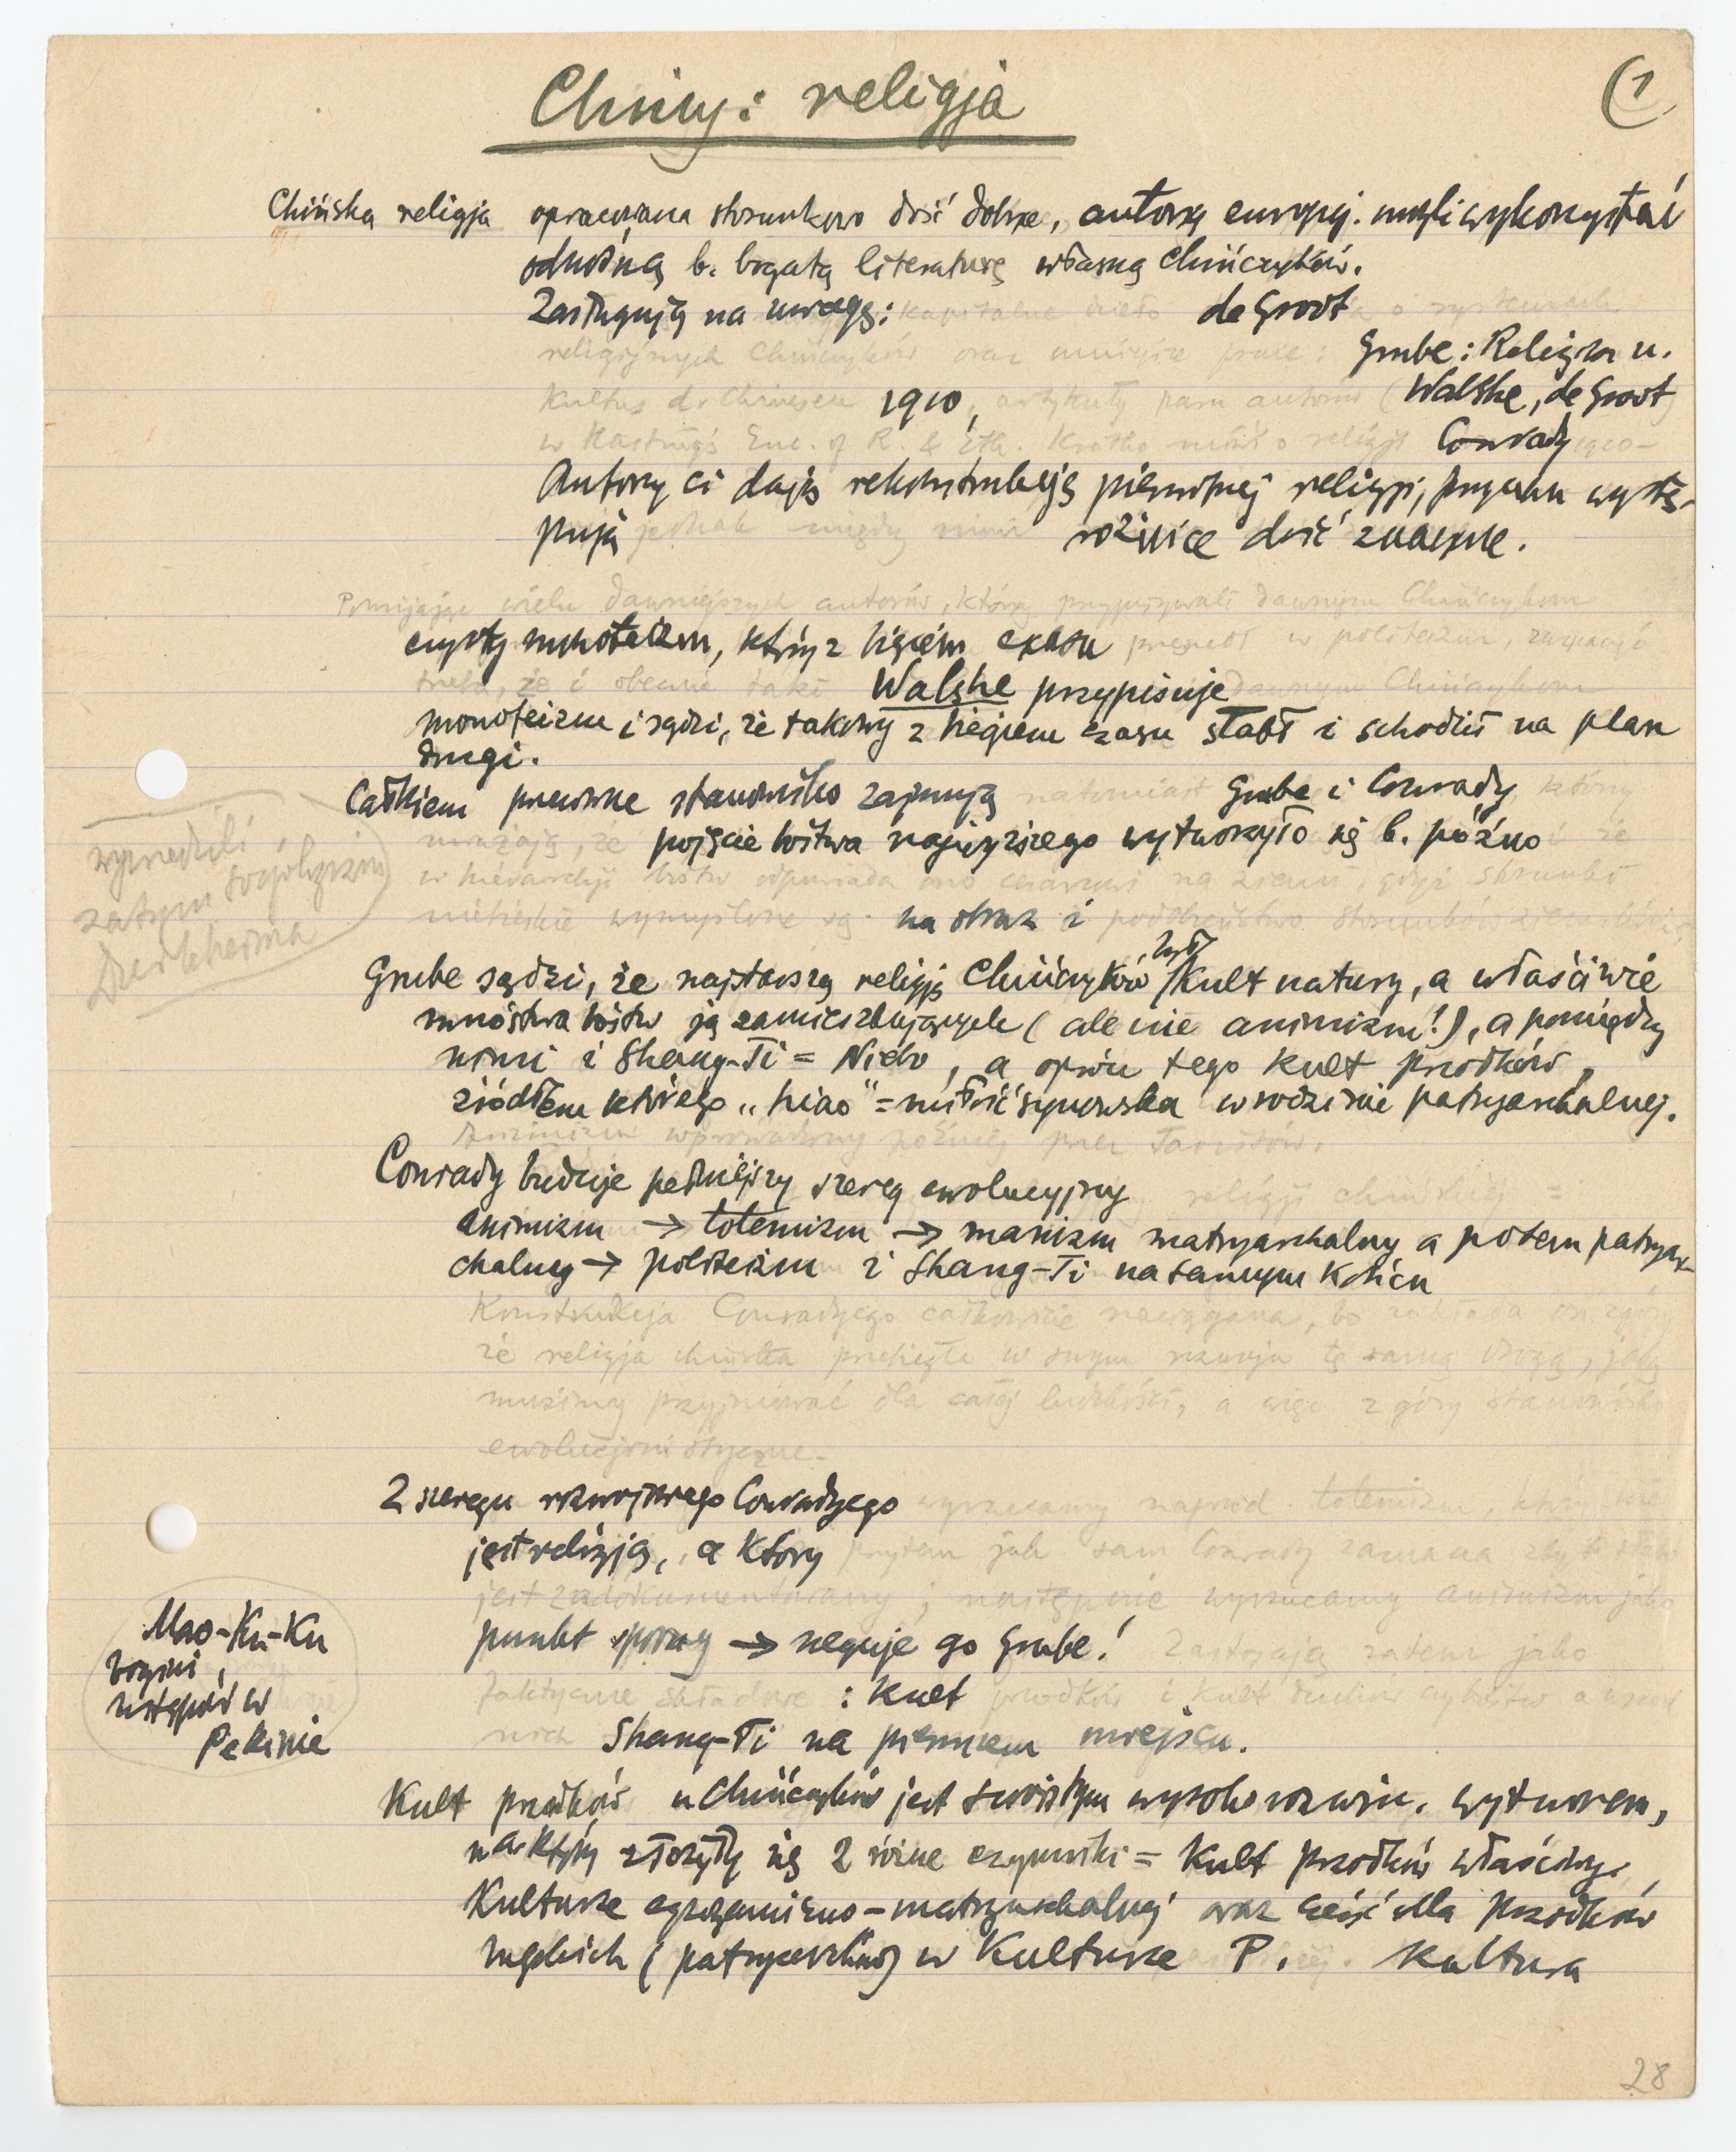 Chiny: religja
(1
Chińska religja opracowana stosunkowo dość dobrze, autorzy europej. mogli wykorzystać
odnośną b. bogatą literaturę własną Chińczyków.
Zasługują na uwagę: kapitalne dzieło de Groot o systemach
religijnych Chińczyków oraz mniejsze prace: Grube: Religion u.
Kultus d. Chinesen 1910, artykuły paru autorów (Walshe, de Groot)
w Hasting's Enc. of R. & Eth. Krótko mówił o religji Conrady 1910-
Autorzy ci dają rekonstrukcję pierwotnej religji, przyczem wystę-
pują jednak między nimi różnice dość znaczne.
Pomijając wielu dawniejszych autorów, którzy przypisywali dawnym Chińczykom
czysty monoteizm, który z biegiem czasu przeszedł w politeizm, zaznaczyć
trzeba, że i obecnie także Walshe przypisuje dawnym Chińczykom
monoteizm i sądzi, że takowy z biegiem czasu słabł i schodził na plan
drugi.
Całkiem przeciwne stanowisko zajmują natomiast Grube i Conrady, którzy
uważają, że pojęcie bóstwa najwyższego wytworzyło się b. późno i że
w hierarchji bóstw odpowiada ono cesarzowi na ziemi, gdyż stosunki
niebieskie wymyślone są na obraz i podobieństwo stosunków
wyprzedzili
zatym socjologizm
Durkheima
Grube sądzi, że najstarszą religją Chińczyków był kult natury, a właściwie
mnóstwa bóstw ją zamieszkujących (ale nie animizm!), a pomiędzy
nimi i Shang-Ti = Niebo, a oprócz tego kult przodków,
źródłem którego „hiao" = miłość synowska w rodzinie patryarchalnej.
Animizm wprowadzony później przez Taoistów.
Conrady buduje pełniejszy szereg ewolucyjny religji chińskiej =
animizm → totemizm → manizm matryarchalny a potem patryar-
chalny → politeizm i Shang-Ti na samym końcu
Konstrukcja Conradyego całkowicie naciągana, bo zakłada on zgóry
że religja chińska przebiegła w swym rozwoju tę samą drogę, jaką
musimy przyjmować dla całej ludzkości, a więc z góry stanowisko
ewolucjonistyczne.
Z szeregu rozwojowego Conradyego wyrzucamy naprzód totemizm, który nie
jest religją, a który przytem jak sam Conrady zaznacza zbyt słabo
jest zadokumentowany; następnie wyrzucamy animizm jako
punkt sporny → neguje go Grube! Zostają zatem jako
faktyczne składowe: kult przodków i kult duchów czy bóstw a wśród
nich Shang-Ti na pierwszem miejscu.
Mao-Ku-Ku
bogini
ustępów w
Pekinie
Kult przodków u Chińczyków jest swoistym wysoko rozwin. wytworem,
na który złożyły się 2 różne czynniki = kult przodków właściwy
kulturze egzogamiczno-matryarchalnej oraz cześć dla przodków
męskich (patryarchów) w kulturze P. kultura
28